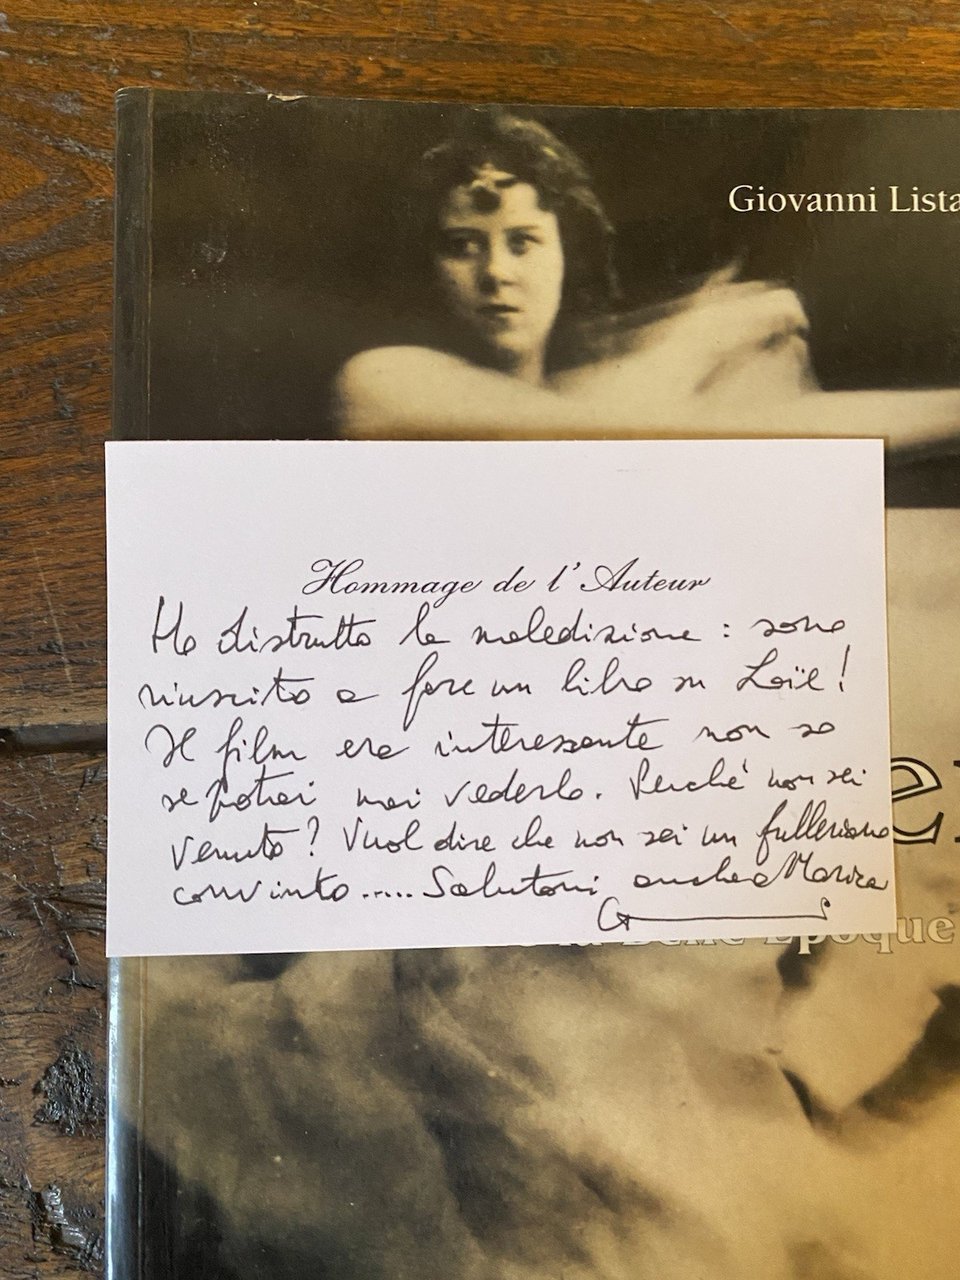 Giovanni Lista
Hommage de l'Auteur
Ho distrutto la maledizione : sono
riuscito a fare un libro su Loïe !
Il film era interessante non so
se potrai mai vederlo. Perché non sei
venuto ? Vuol dire che non sei un fulleriano
convinto ..... Salutoni anche a Marisa
G
er
Belle Epoque